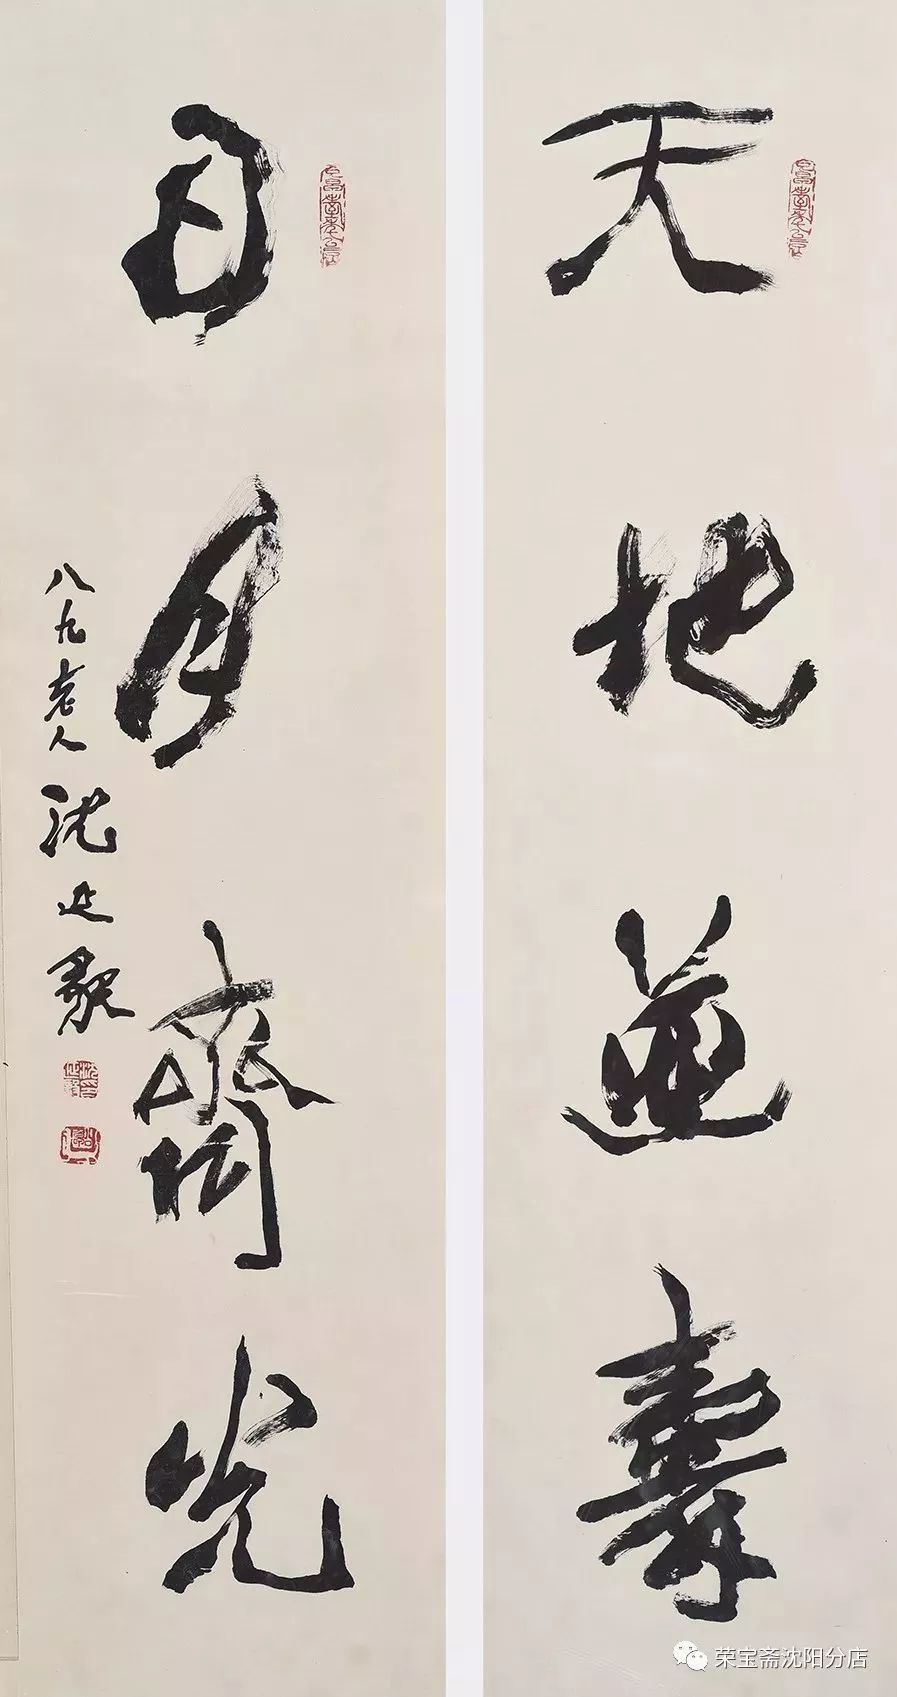 天地並壽
日月齊光
八九老人
沈延毅
荣宝斋沈阳分店